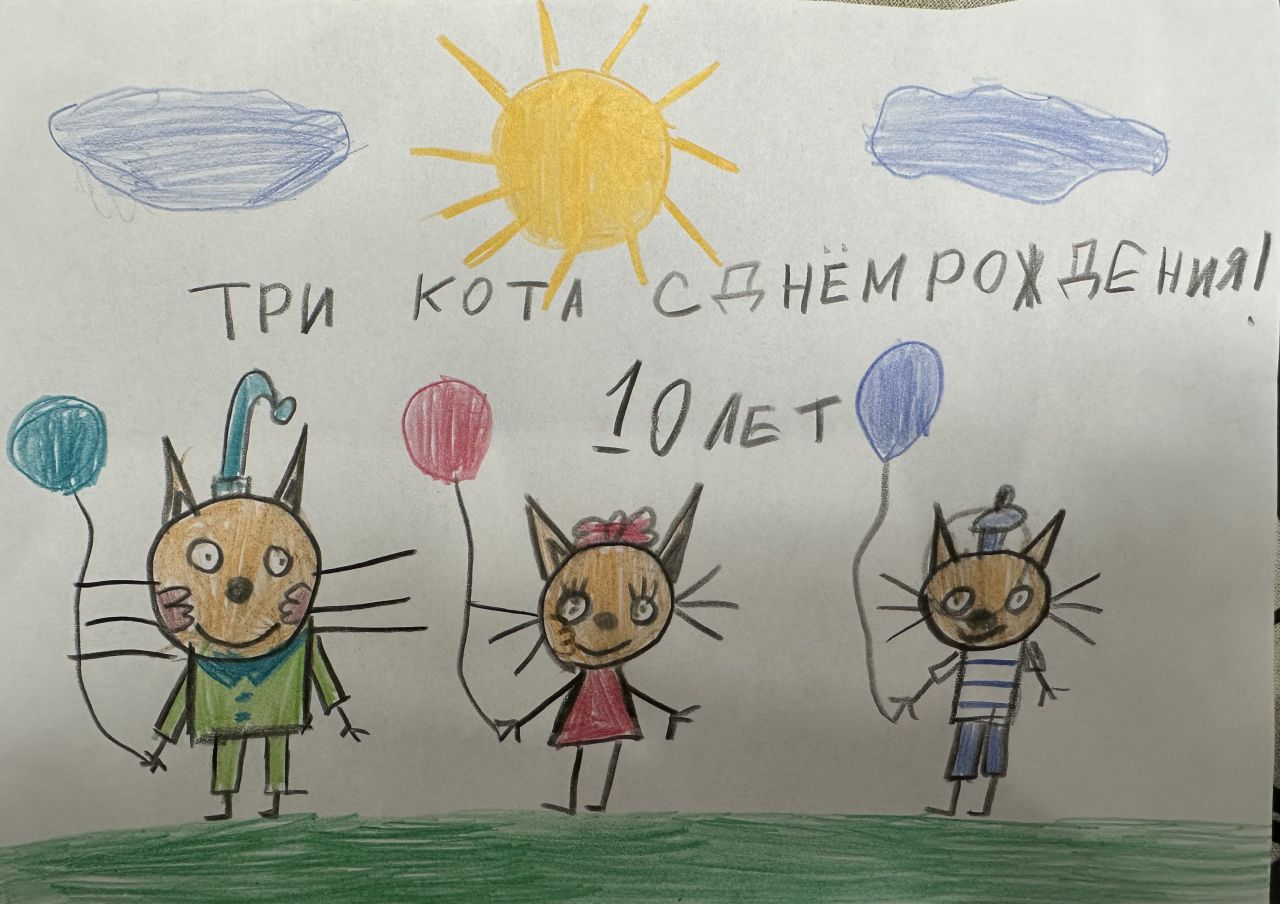 ТРИ КОТА С ДНЁМ РОЖДЕНИЯ!
10 ЛЕТ